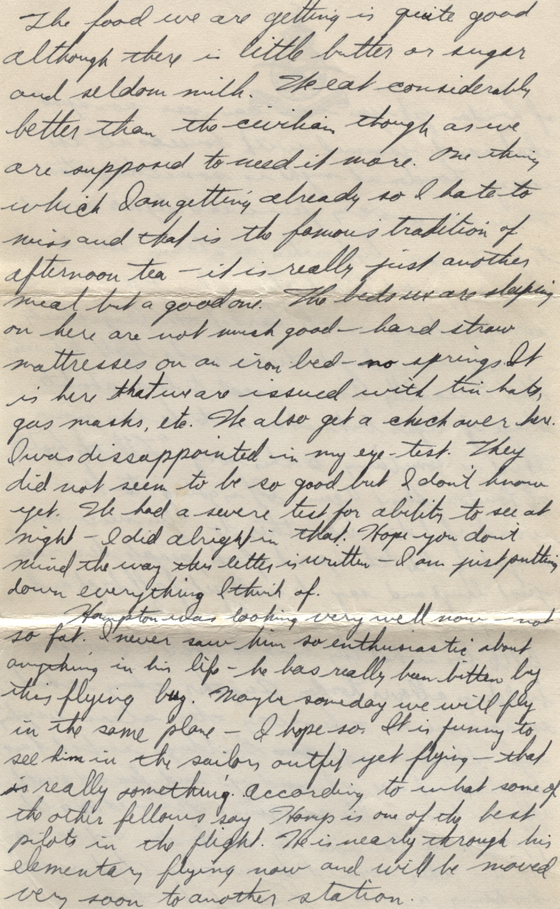 The food we are getting is quite good
although there is little butter or sugar
and seldom milk. We eat considerably
better than the civilian though as we
are supposed to need it more. One thing
which I am getting already so I hate to
miss and that is the famous tradition of
afternoon tea - it is really just another
meal but a good one. The beds we are sleeping
on here are not much good - hard straw
mattresses on an iron bed - no springs. It
is here that we are issued with tin hats,
gas masks, etc. We also get a check over here.
I was dissappointed in my eye-test. They
did not seem to be so good but I don't know
yet. We had a severe test for ability to see at
night - I did alright in that. Hope you don't
mind the way this letter is written - I am just putting
down everything I think of.
Hampton was looking very well now - not
so fat. I never saw him so enthusiastic about
anything in his life - he has really been bitten by
this flying bug. Maybe someday we will fly
in the same plane - I hope so. It is funny to
see him in the sailors outfit yet flying - that
is really something. According to what some of
the other fellows say Hamp is one of the best
pilots in the flight. He is nearly through his
elementary flying now and will be moved
very soon to another station.